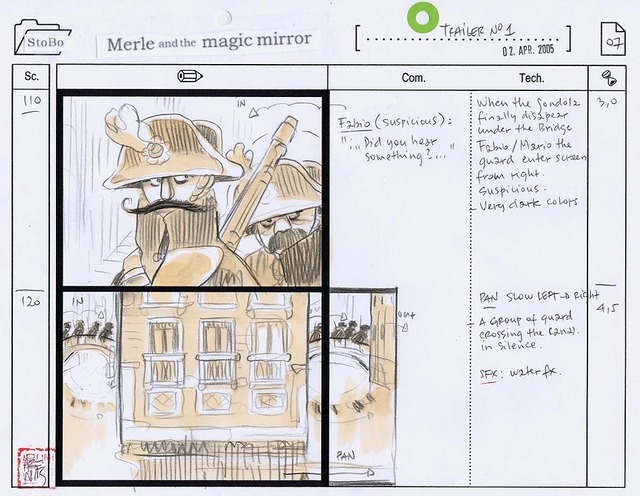 StoBo
Merle and the magic mirror
TRAILER No 1
02. APR. 2005
07
Sc.
Com.
Tech.
110
IN
Fabio (suspicious):
"... Did you hear
something?..."
When the Gondola
finally disapear
under the Bridge
Fabio/Mario the
guard enter screen
from right.
suspicious.
- Very dark colors
3,0
120
IN
out
PAN
PAN SLOW LEFT → Right
- A group of guard
crossing the canal.
in silence.
SFX: water fx.
4,5